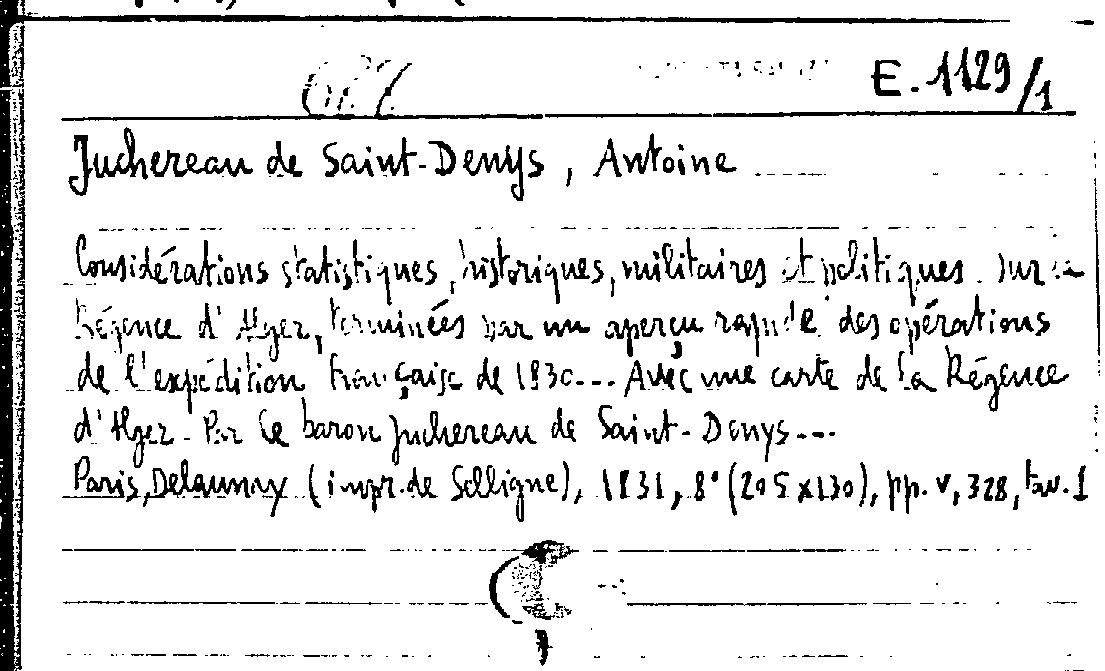 E. 1129/1
Juchereau de Saint-Denys, Antoine
Considérations statistiques, historiques, militaires et politiques sur la
Régence d'Alger, terminées par un aperçu rapide des opérations
de l'expédition française de 1830... Avec une carte de la Régence
d'Alger. Par le baron Juchereau de Saint-Denys...
Paris, Delaunay (impr. de Selligne), 1831, 8° (205x130), pp. v, 328, tav. 1